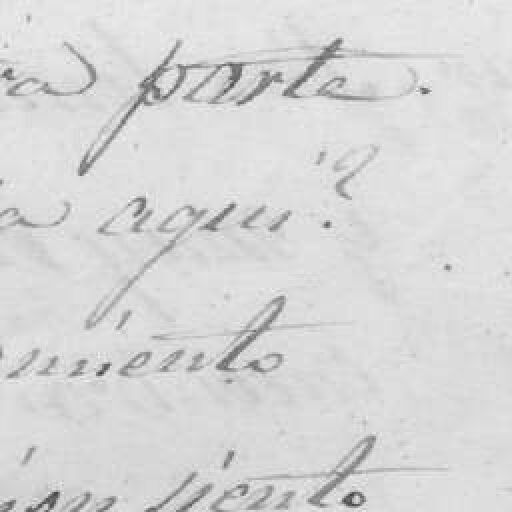 ra parte.
a aqui?
miento
ion siento